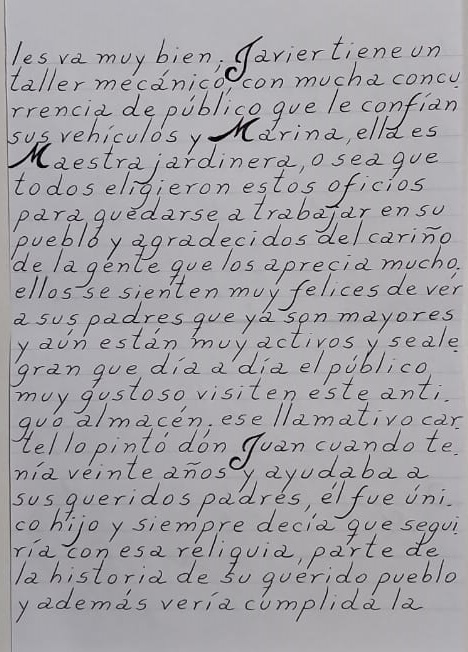 les va muy bien; Javier tiene un
taller mecánico, con mucha concu.
rrencia de público que le confían
sus vehículos y Marina, ella es
Maestra jardinera, o sea que
todos eligieron estos oficios
para quedarse a trabajar en su
pueblo y agradecidos del cariño
de la gente que los aprecia mucho.
ellos se sienten muy felices de ver
a sus padres que ya son mayores
y aún están muy activos y se ale.
gran que día a día el público,
muy gustoso visiten este anti.
guo almacén. ese llamativo car
tel lo pintó dón Juan cuando te.
nía veinte años y ayudaba a
sus queridos padres, él fue úni.
co hijo y siempre decía que segui
ría con esa reliquia, parte de
la historia de su querido pueblo
y además vería cumplida la